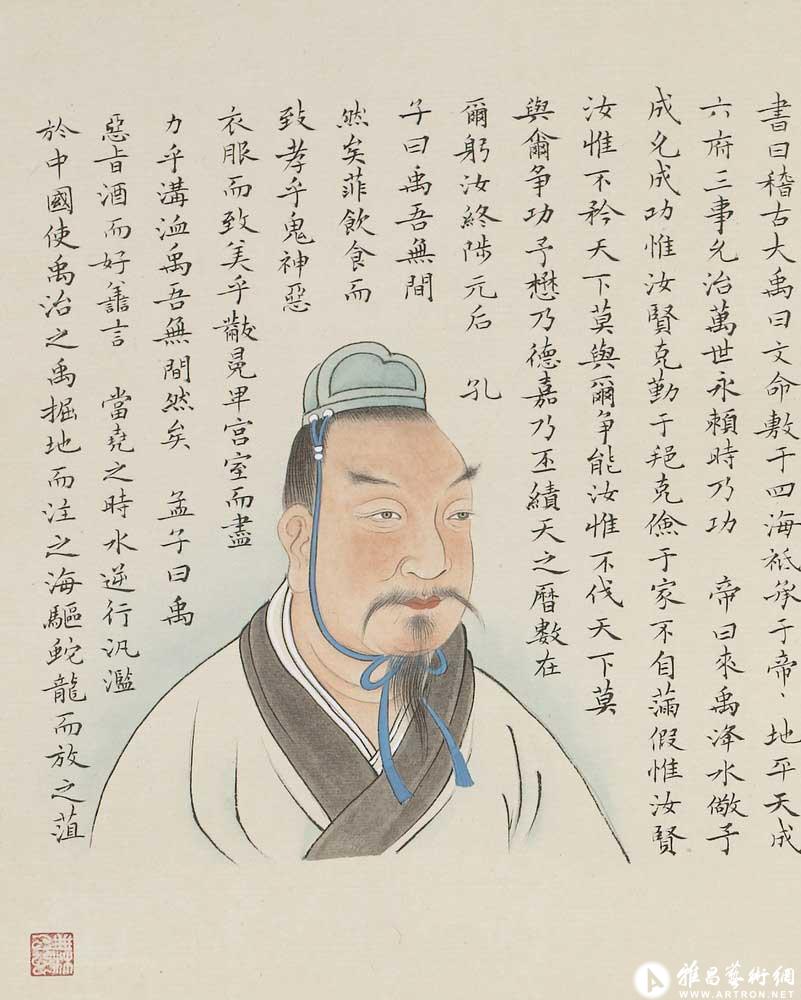 書曰稽古大禹曰文命敷于四海祗承于帝〻地平天成
六府三事允治萬世永賴時乃功　帝曰來禹洚水儆予
成允成功惟汝賢克勤于邦克儉于家不自滿假惟汝賢
汝惟不矜天下莫與爾爭能汝惟不伐天下莫
與爾爭功予懋乃德嘉乃丕績天之曆數在
爾躬汝終陟元后　孔
子曰禹吾無間
然矣菲飲食而
致孝乎鬼神惡
衣服而致美乎黻冕卑宮室而盡
力乎溝洫禹吾無間然矣　孟子曰禹
惡旨酒而好善言　當堯之時水逆行汎濫
於中國使禹治之禹掘地而注之海驅蛇龍而放之菹
雅昌藝術網
WWW.ARTRON.NET